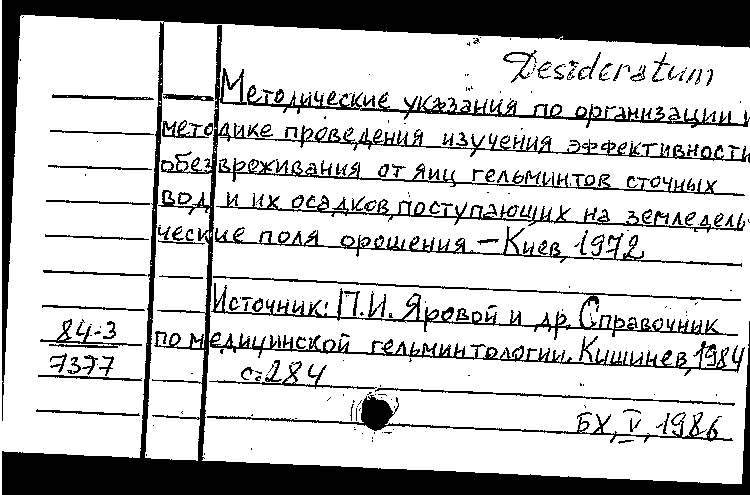 Desideratum
Методические указания по организации и
методике проведения изучения эффективности
обезвреживания от яиц гельминтов сточных
вод и их осадков, поступающих на земледель-
ческие поля орошения. – Киев, 1972
Источник: П.И. Яровой и др. Справочник
по медицинской гельминтологии. Кишинев, 1984
с. 284
84-3
7377
БХ, V, 1986